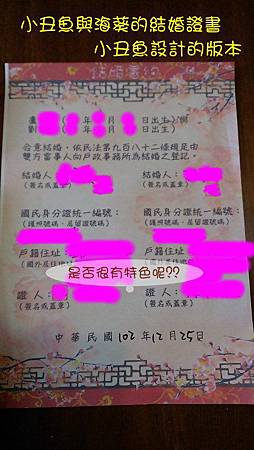 小丑魚與海葵的結婚證書
小丑魚設計的版本
年 月 日出生)與
劉 年 月 日出生)
合意結婚,依民法第九百八十二條規定由
雙方當事人向戶政事務所為結婚之登記。
結婚人 結婚人
(簽名或蓋章) (簽名或蓋章)
國民身分證統一編號: 國民身分證統一編號:
(護照號碼、居留證號碼) (護照號碼、居留證號碼)
戶籍住址: 戶籍住址:
是否很有特色呢??
證 人: 證 人:
(簽名或蓋章) (簽名或蓋章)
中華民國102年12月25日